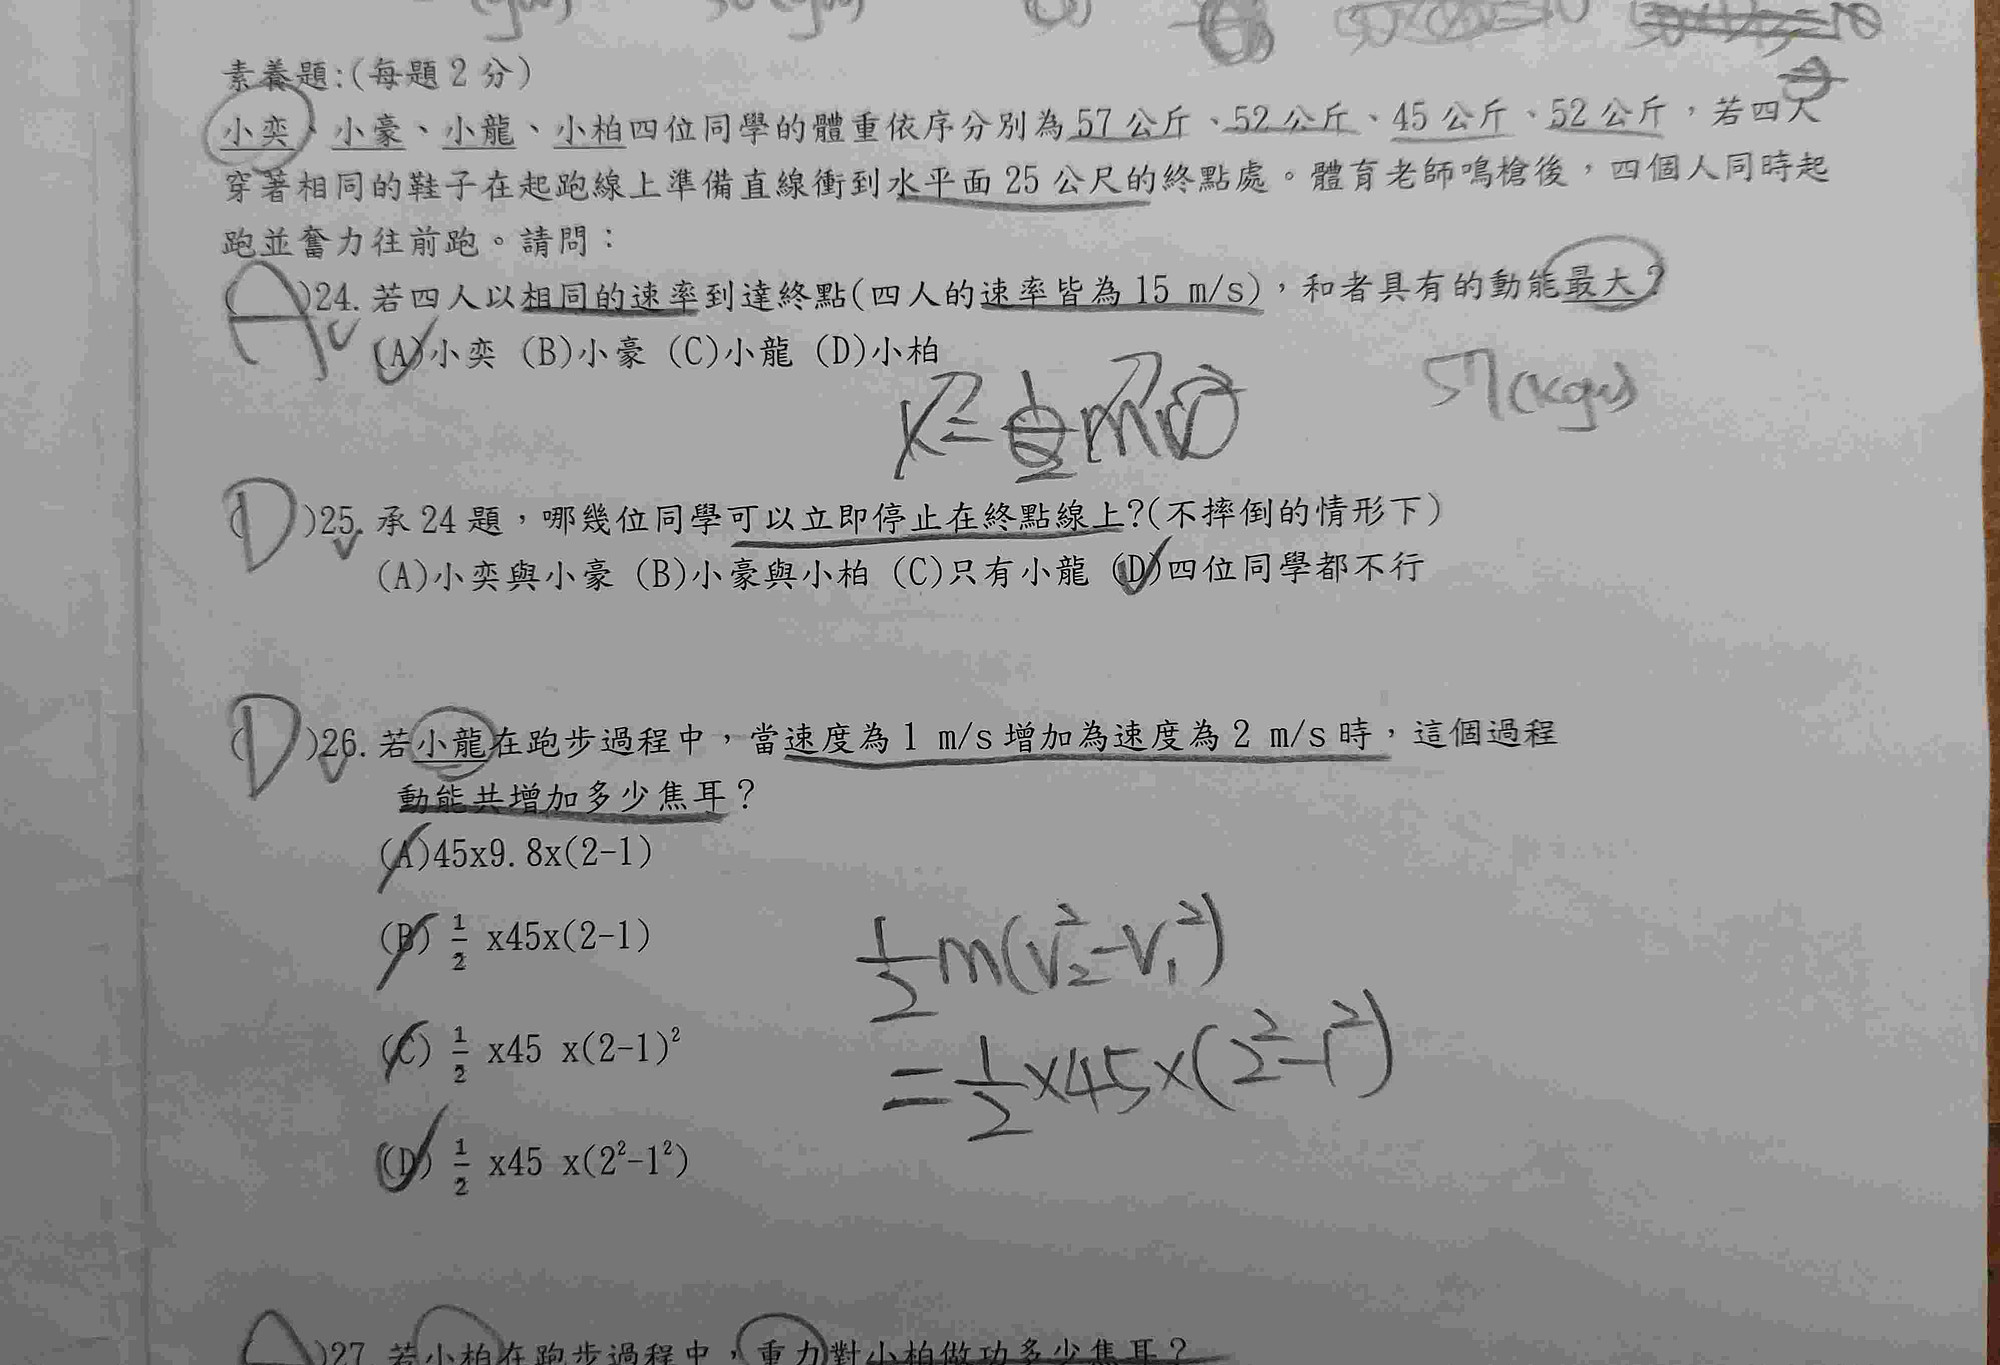 素養題:(每題2分)
小奕、小豪、小龍、小柏四位同學的體重依序分別為57公斤、52公斤、45公斤、52公斤，若四人
穿著相同的鞋子在起跑線上準備直線衝到水平面25公尺的終點處。體育老師鳴槍後，四個人同時起
跑並奮力往前跑。請問：
(A)24. 若四人以相同的速率到達終點(四人的速率皆為15 m/s)，和者具有的動能最大?
(A)小奕 (B)小豪 (C)小龍 (D)小柏
57(kgw)
(D)25. 承24題，哪幾位同學可以立即停止在終點線上?(不摔倒的情形下)
(A)小奕與小豪 (B)小豪與小柏 (C)只有小龍 (D)四位同學都不行
(D)26. 若小龍在跑步過程中，當速度為1 m/s增加為速度為2 m/s時，這個過程
動能共增加多少焦耳?
(A)45x9.8x(2-1)
(B) 1/2 x45x(2-1)
1/2 m(V₂²-V₁²)
(C) 1/2 x45 x(2-1)²
=1/2×45×(2²-1²)
(D) 1/2 x45 x(2²-1²)
(A)27. 若小柏在跑步過程中，重力對小柏做功多少焦耳?